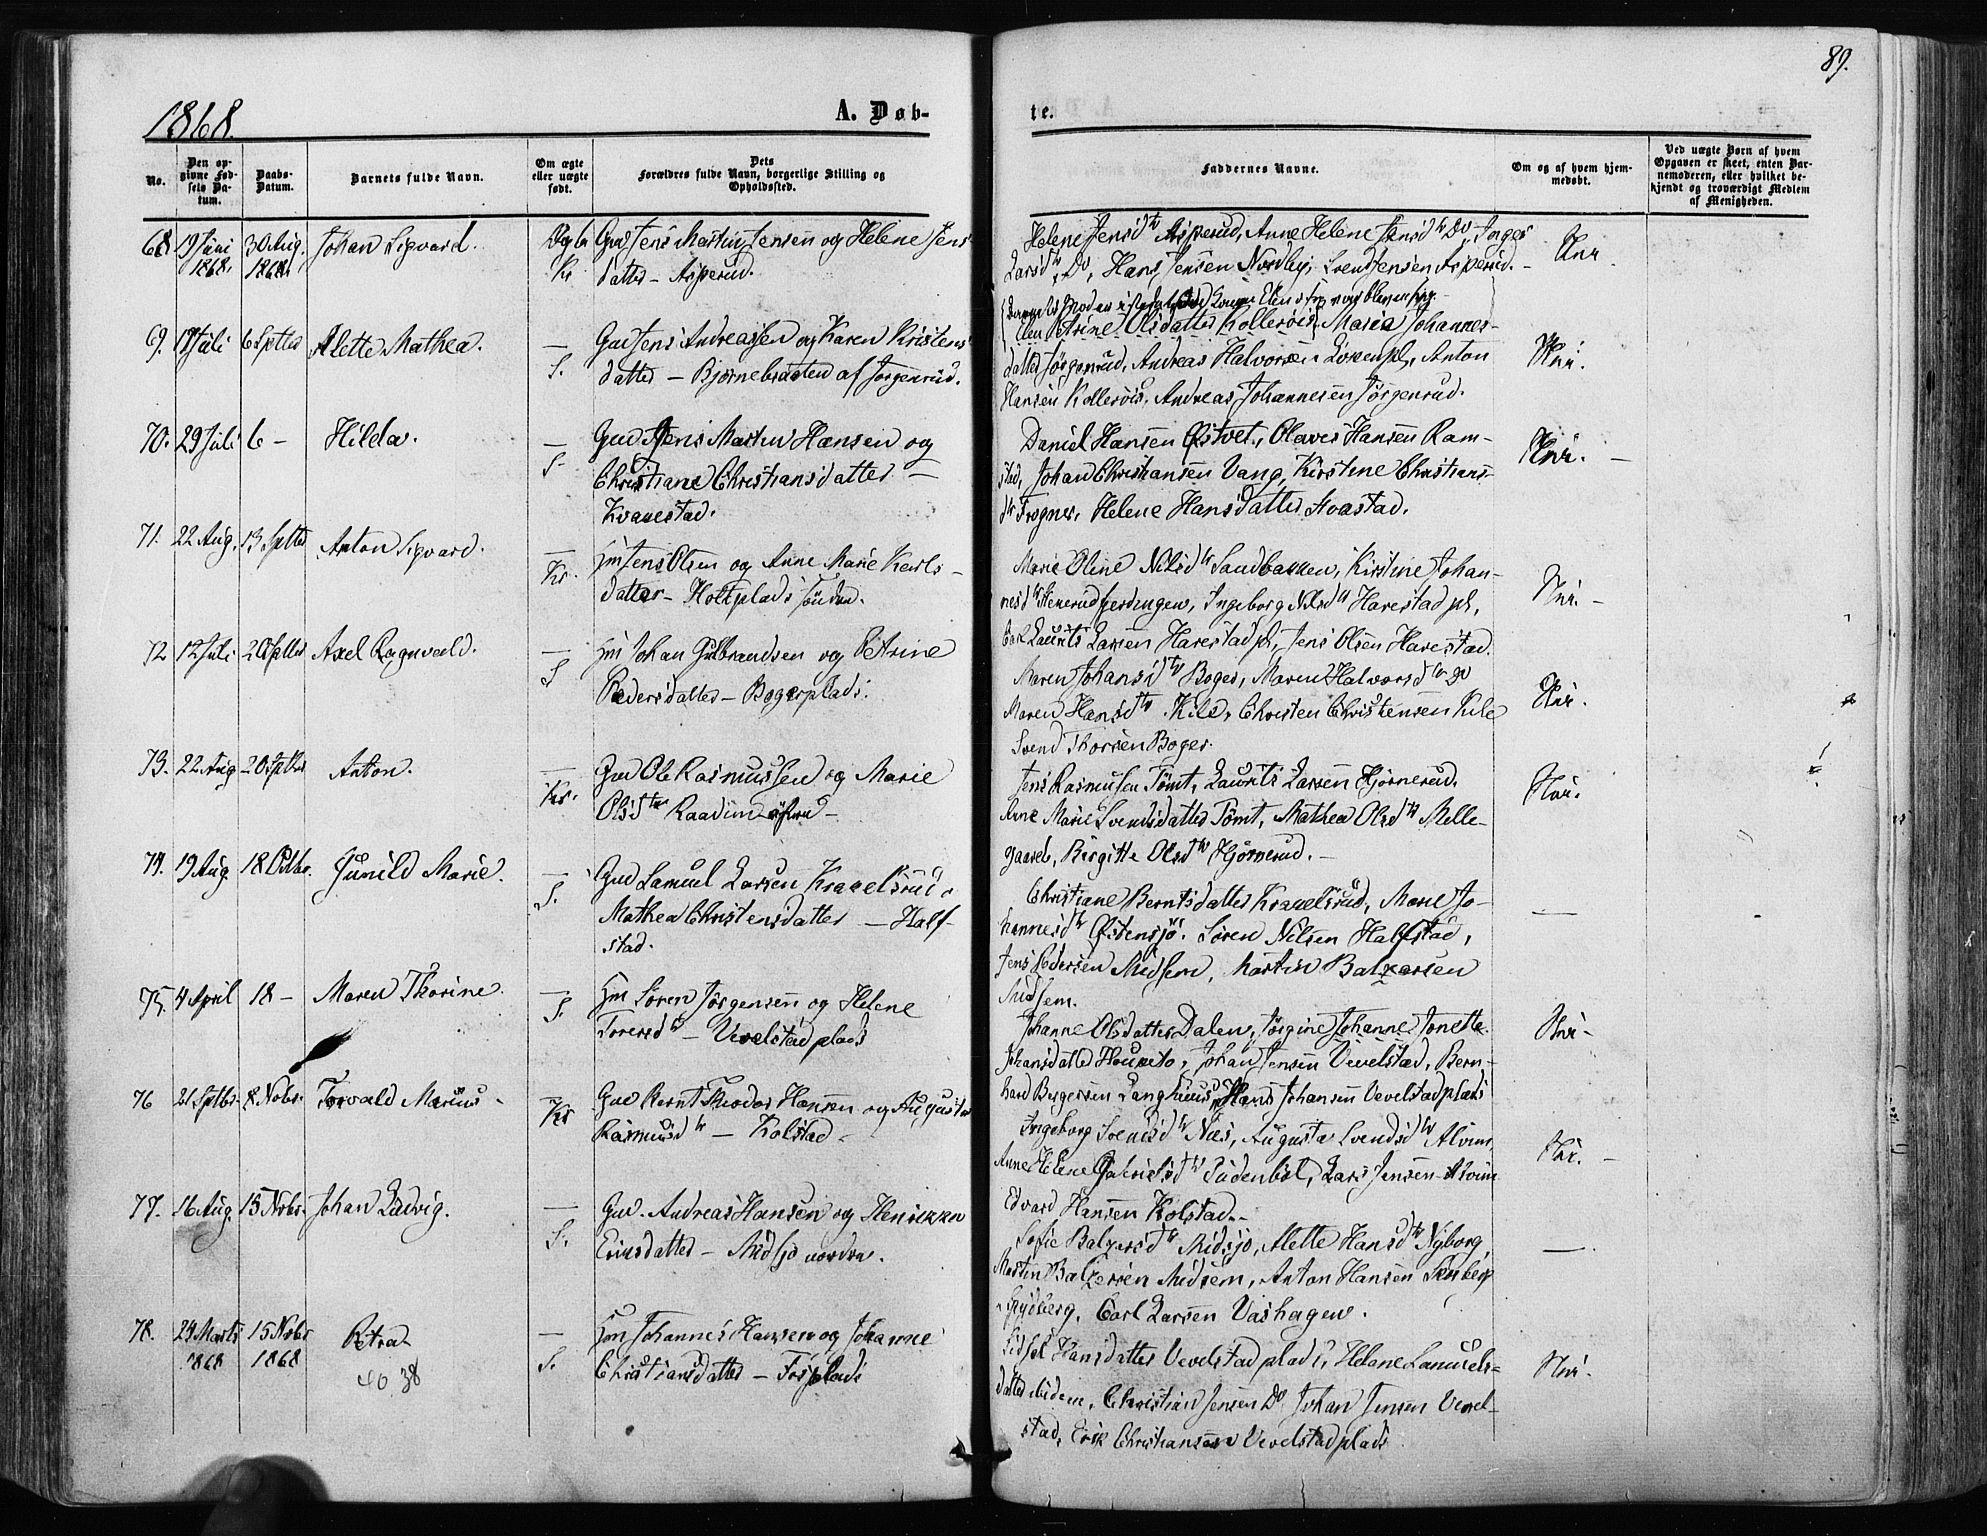 89.
1868.
A. Døb-
te.
No.
Den op-
givne Fød-
sels Da-
tum.
Daabs-
Datum.
Barnets fulde Navn.
Om ægte
eller uægte
født.
Dets
Forældres fulde Navn, borgerlige Stilling og
Opholdssted.
Faddernes Navne.
Om og af hvem hjem-
medøbt.
Ved uægte Børn af hvem
Opgaven er skeet, enten Bar-
nemoderen, eller hvilket be-
kjendt og troværdigt Medlem
af Menigheden.
68 19 Juni 30 Aug. Johan Sigvard.
1868. 1868.
Kr
Gud Jens Martin Jensen og Helene Jens
datter – Asperud.
Helene Jensd tr Asperud, Anne Helene Jensd tr Do
Larsd tr Do, Hans Jensen Nordby, Svend Jensen Asperud. –
69. 6 Septbr Alette Mathea.
— S.
Gud Jens Andreassen og Karen Kristens
datter – Bjørnebraaten af Jørgenrud.
Elen Petrine Olsdatter Kollerøis, Maria Johannes-
datter Jørgenrud, Andreas Halvorsen pl, Anton
Hansen Kollerøis, Andreas Johannesen Jørgenrud.
70. 29 Juli 6 – Hilda.
— S.
Gud Jens Martin Hansen og
Christiane Christiansdatter –
Kvanestad.
Daniel Hansen Østvet, Olaves Hansen Ram-
stad, Johan Christiansen Vang, Kirstine Christians-
dtr Frogner, Helene Hansdatter Svastad.
71. 22 Aug. 13 Septbr Anton Sigvard.
— Kr.
Hm Jens Olsen og Anne Marie Karls-
datter – Holtplads søndre.
Marie Oline Nilsd tr Sandbakken, Kirstine Johan-
nesd tr , Ingeborg Nilsd tr Harestad pl,
Carl Laurits Larsen Harestad pl, Jens Olsen Harestad.
72 12 Juli 20 Septbr Axel Ragnvald.
— S
Hm Johan Gulbrandsen og Petrine
Pedersdatter – Bogerplads.
Maren Johansd tr Boger, Maren Halvorsd tr do
Maren Hansd tr Kile, Christen Christensen Kile
Svend Thorsen Boger.
73. 22 Aug 20 Septbr Anton.
— Kr.
Gud Ole Rasmussen og Marie
Olsd tr Raadim
Jens Rasmusen Tømt, Laurits Larsen Hjørnerud.
Anne Marie Svendsdatter Tømt, Mathea Olsd tr Melle-
gaard, Birgitte Olsd tr Hjørnerud. –
74. 19 Aug. 18 Octbr. Gunild Marie.
— S.
Gud Samuel Larsen Kragelsrud o
Mathea Christensdatter – Half-
stad.
Christiane Berntsdatter Kragelsrud, Marie Jo-
hannesd tr Østensjø, Søren Nilsen Halfstad,
Jens Pedersen Midsem, Martin Balzersen
Midsem.
75. 4 April 18 – Maren Thorine.
— S.
Hm Søren Jørgensen og Helene
Toresd tr – Vevelstad plads
Johanne Olsdatter Dalen, Jørgine Johanne Jonette
Johansdatter Haugeto, Johan Jensen Vevelstad, Bern-
hard Birgersen Langhuus, Hans Johansen Vevelstad plads
76 21 Septbr 8 Novbr. Torvald Marius –
— Kr
Gud Bernt Theodor Hansen og Augusta
Rasmusd tr – Kolstad –
Ingeborg Svendsd tr Næs, Augusta Svendsd tr Alvim,
Anne Helene Gabrielsd tr Sudenbøl, Lars Jensen Alvim
Edvard Hansen Kolstad. –
77. 16 Aug. 15 Novbr. Johan Ludvig.
— S.
Gud. Andreas Hansen og Henrikke
datter – Midsjø nordre.
Sofie Balzersd tr Midsjø, Alette Hansd tr Nyborg,
Martin Balzersen Midsem, Anton Hansen
Spydberg, Carl Larsen Vashagen.
78. 24 Marts 15 Novbr Petra
1868 1868
40 38
— S.
Hm Johannes Hansen og Johanne
Christiansdatter – Fosplads
Sidsel Hansdatter Vevelstad plads, Helene Samuels-
datter Midem, Christian Jensen Do Johan Jensen Vevel-
stad, Erik Christiansen Vevelstad plads